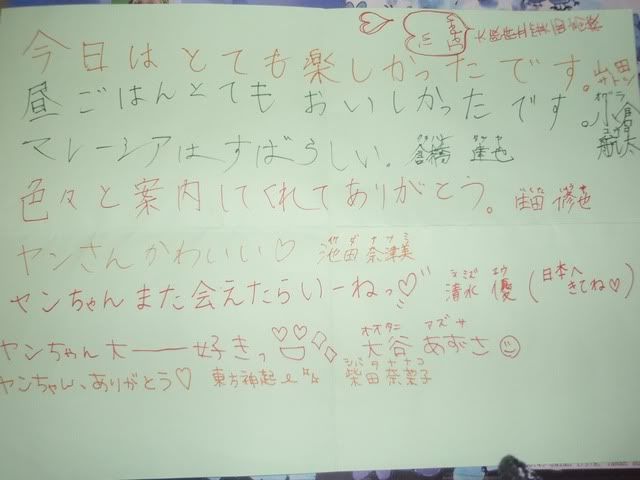 今日はとても楽しかったです。山田
昼ごはんとてもおいしかったです。小倉航太
オグラ
マレーシアはすばらしい。倉橋 達也
色々と案内してくれてありがとう。 修也
ヤンさんかわいい♡ 池田 奈津美
イケダ ナツミ
ヤンちゃんまた会えたらいーねっ♡ 清水 優 (日本へきてね♡)
シミズ ユウ
ヤンちゃん大──好きっ 大谷 あずさ
オオタニ アズサ
ヤンちゃん、ありがとう♡ 東方神起 柴田 奈菜子
シバタ ナナコ